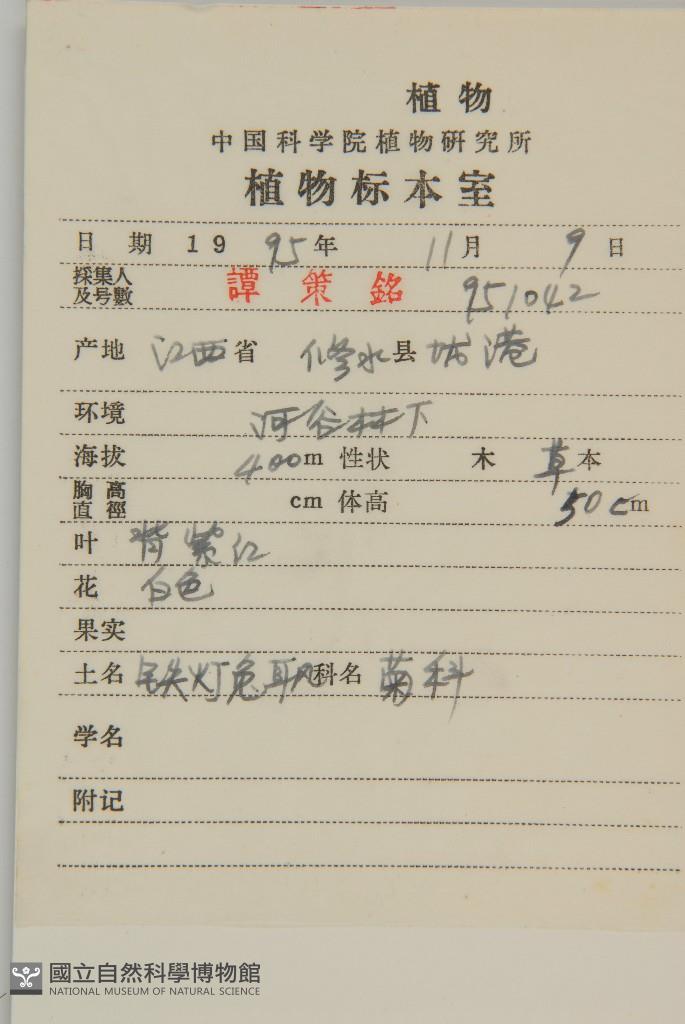 植物
中国科学院植物研究所
植物标本室
日 期 19 95 年 11 月 9 日
採集人及号數 譚策銘 951042
产地 江西 省 修水 县 港
环境 河谷林下
海拔 400 m 性状 木 草 本
胸高直徑 cm 体高 50 cm
叶 背紫红
花 白色
果实
土名 铁灯兔耳风 科名 菊科
学名
附记
國立自然科學博物館
NATIONAL MUSEUM OF NATURAL SCIENCE